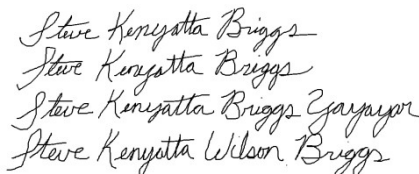 Steve Kenyatta Briggs
Steve Kenyatta Briggs
Steve Kenyatta Briggs
Steve Kenyatta Wilson Briggs